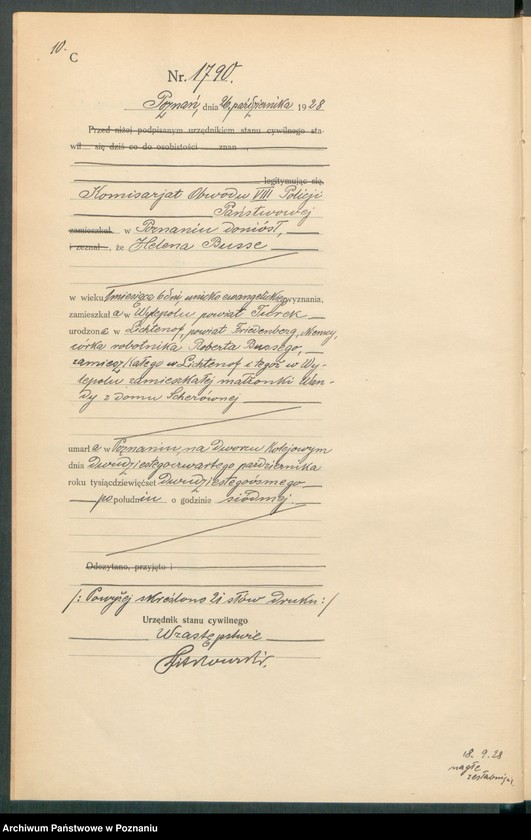 10.
C
Nr. 1790.
Poznań, dnia 26 października 1928
Przed niżej podpisanym urzędnikiem stanu cywilnego sta-
wił się dziś co do osobistości znan
legitymując się,
Komisarjat Obwodu VIII Policji
Państwowej
zamieszkał w Poznaniu doniósł,
i zeznał, że Helena Busse
w wieku 1 miesiąca 6 dni, unicko ewangelickiego wyznania,
zamieszkała w Wylepolu powiat Turek
urodzona w Lichtenof, powiat Friedenberg, Niemcy,
córka robotnika Roberta Bussego,
zamieszkałego w Lichtenof i tegoż w Wy-
lepolu zamieszkałej małżonki Wan-
dy z domu Scherównej
umarła w Poznaniu, na Dworcu Kolejowym
dnia dwudziestegoczwartego października
roku tysiącdziewięćset dwudziestegoósmego
po południu o godzinie siódmej
Odczytano, przyjęto i
/: Powyżej skreślono 21 słów druku :/
Urzędnik stanu cywilnego
W zastępstwie
18. 9. 28
nagłe
Archiwum Państwowe w Poznaniu